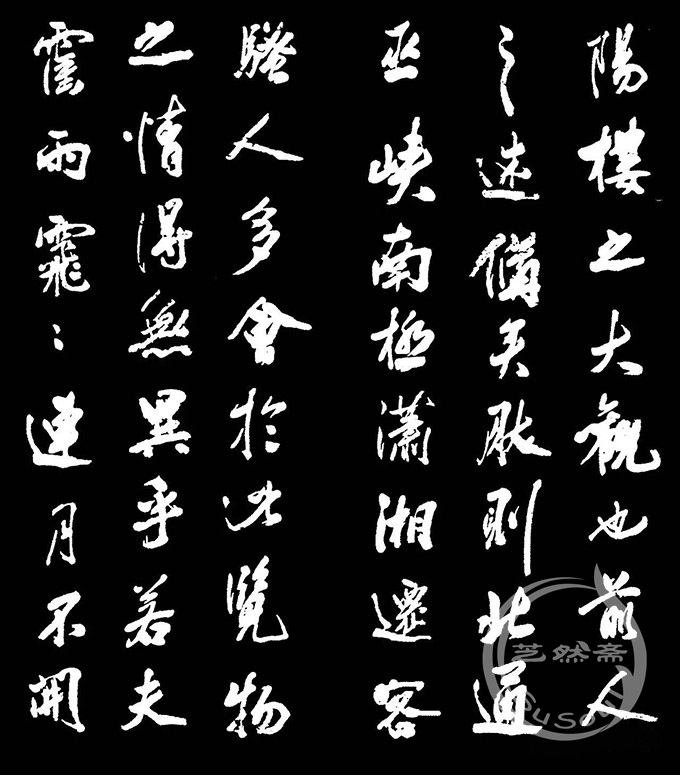 陽樓之大觀也前人
之述備矣然則北通
巫峽南極瀟湘遷客
騷人多會於此覽物
之情得無異乎若夫
霪雨霏々連月不開
艺然斋